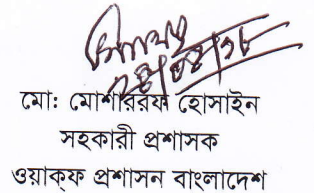 মো: মোশাররফ হোসাইন
সহকারী প্রশাসক
ওয়াক্ফ প্রশাসন বাংলাদেশ